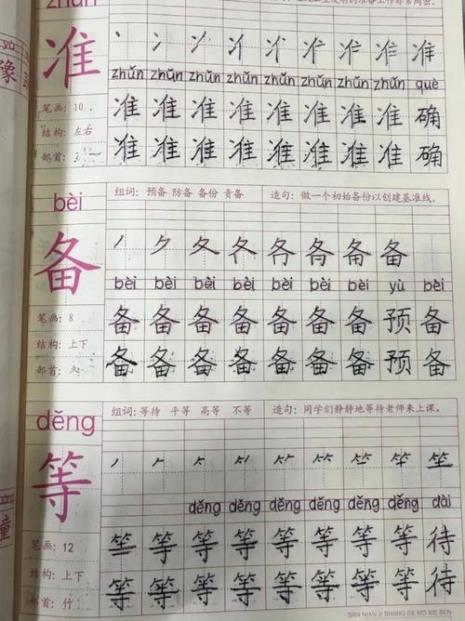 zhǔn
准
zhǔn zhǔn zhǔn zhǔn zhǔn zhǔn zhǔn què
笔画: 10
准 准 准 准 准 准 准 确
结构: 左右
部首: 冫
准 准 准 准 准 准 准 确
bèi
组词: 预备 防备 备份 责备 造句: 做一个初始备份以创建基准线。
备
备
bèi bèi bèi bèi bèi bèi yù bèi
笔画: 8
备 备 备 备 备 备 预 备
结构: 上下
部首: 夂
备 备 备 备 备 备 预 备
děng
组词: 等待 平等 高等 不等 造句: 同学们静静地等待老师来上课。
等
děng děng děng děng děng děng dài
笔画: 12
等 等 等 等 等 等 待
结构: 上下
部首: 竹
等 等 等 等 等 等 等 待
SAN NIAN JI SHANG CE MO XIE BEN